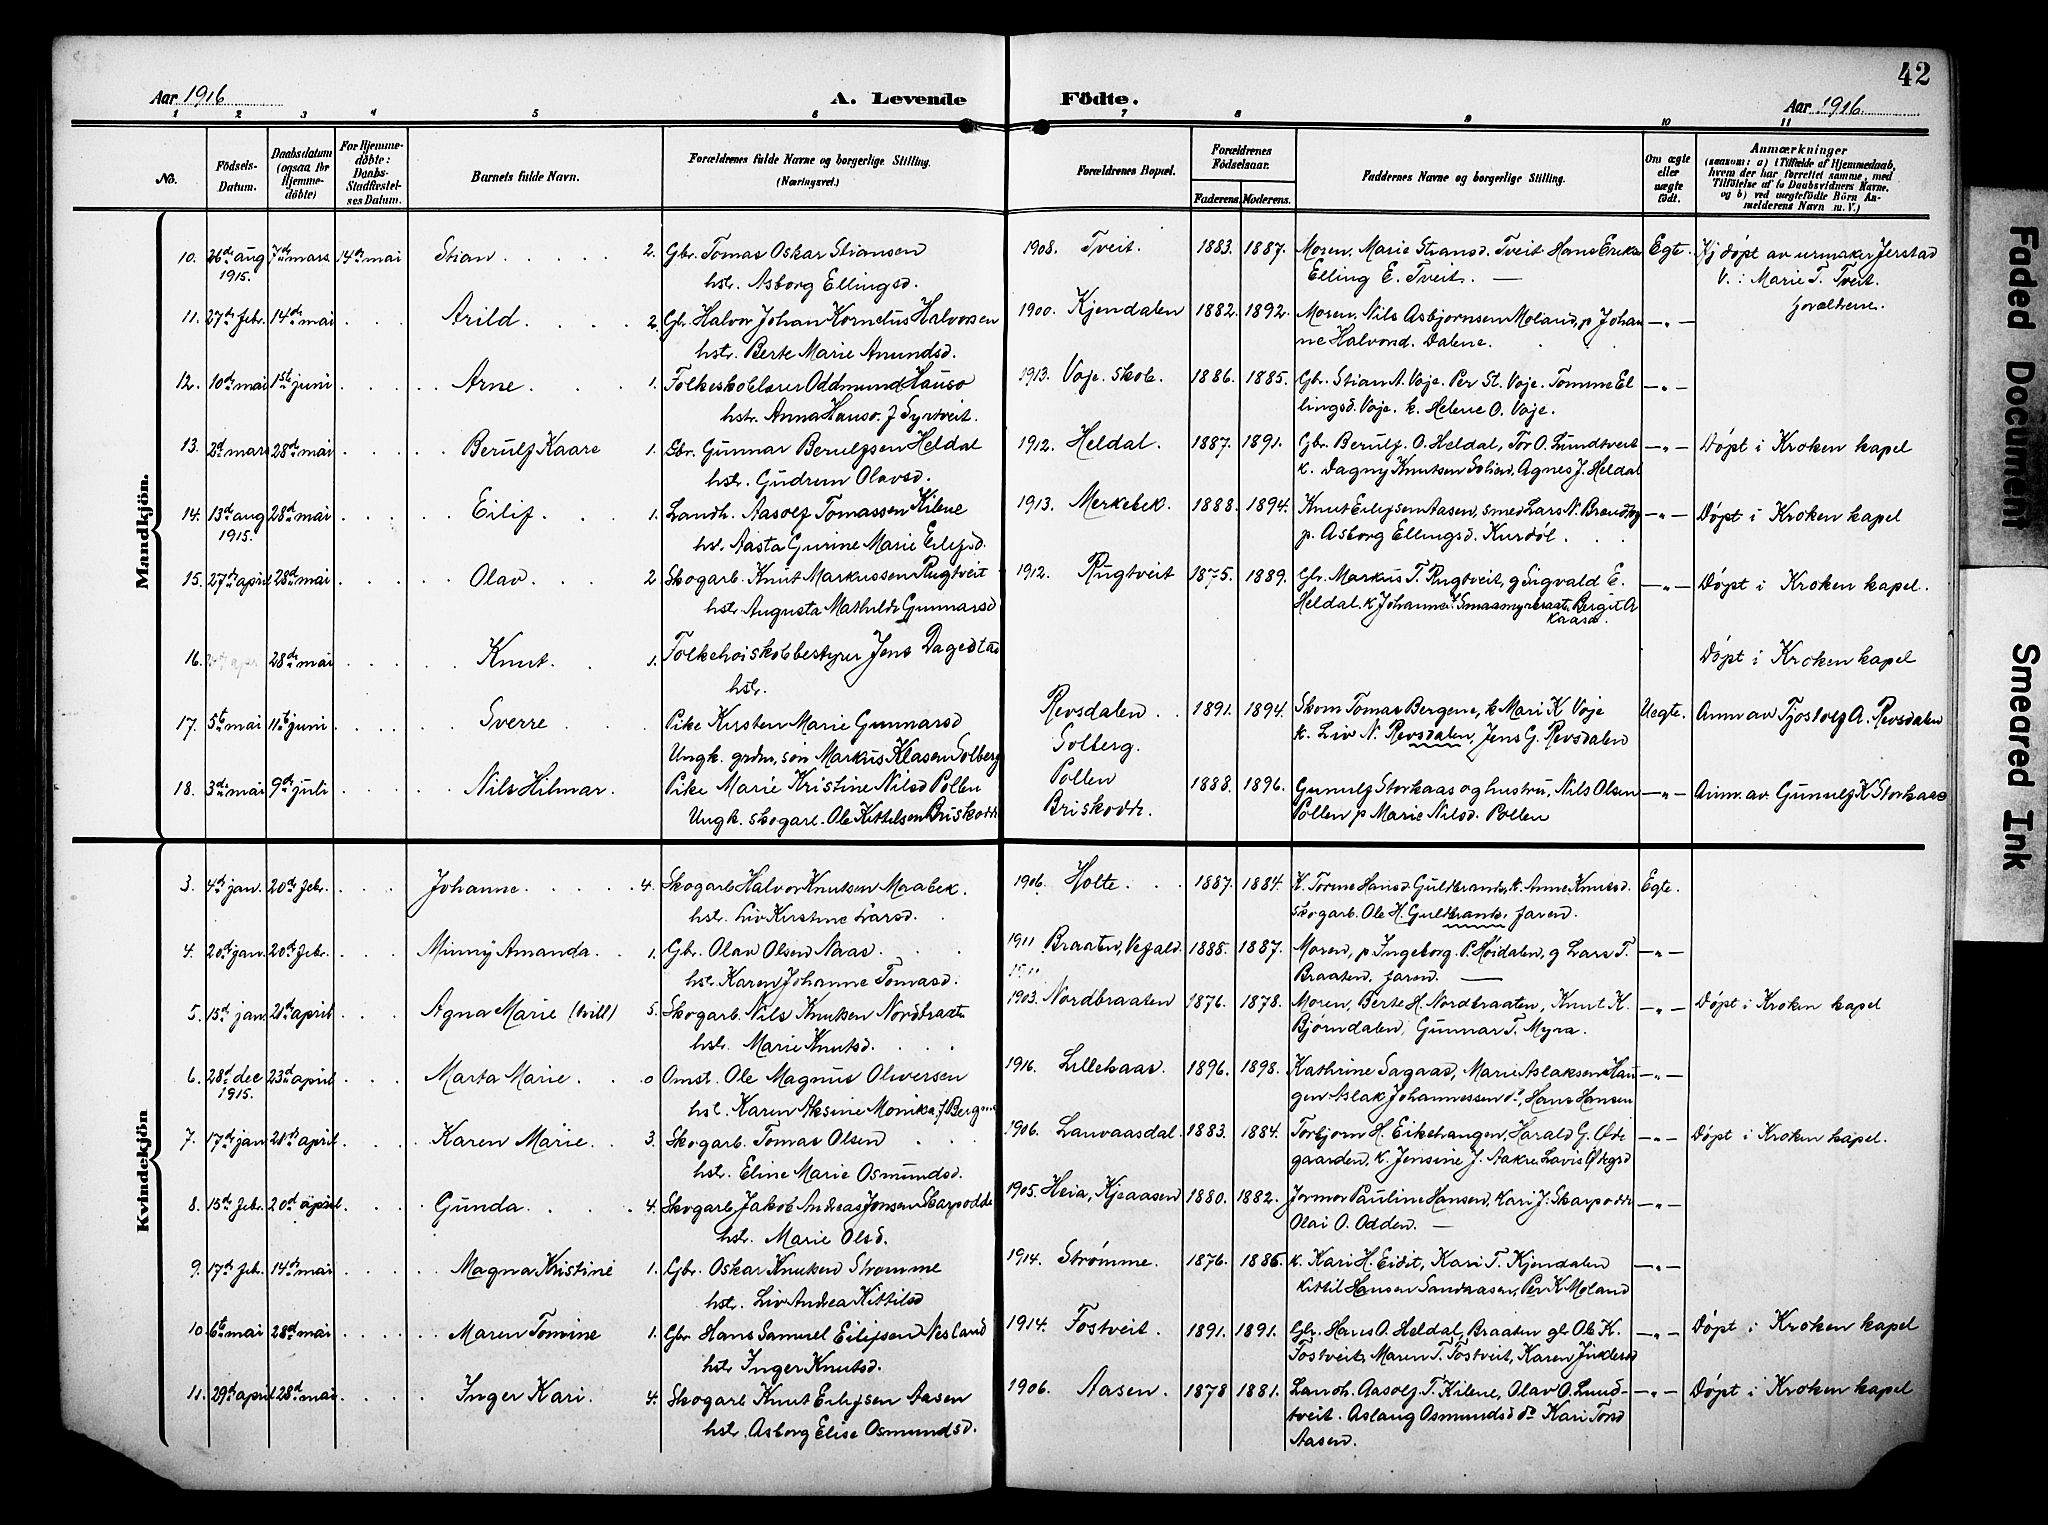 42
Aar 1916 A. Levende Födte. Aar 1916.
1 2 3 4 5 6 7 8 9 10 11
No.
Födsels-Datum.
Daabsdatum (ogsaa for Hjemme-döbte)
For Hjemme-döbte: Daabs-Stadfæstel-ses Datum.
Barnets fulde Navn.
Forældrenes fulde Navne og borgerlige Stilling. (Næringsvei.)
Forældrenes Bopæl.
Forældrenes Födselsaar.
Faderens. Moderens.
Faddernes Navne og borgerlige Stilling.
Om ægte eller uægte födt.
Anmærkninger
(saasom: a) i Tilfælde af Hjemmedaab, hvem der har forrettet samme, med Tilföielse af to Daabsvidners Navne. og b) ved uægtefödte Börn An-melderens Navn m. V.)
Mandkjön.
10. 26de aug 7de mars 14de mai Stian 2. Gbr. Tomas Oskar Stiansen 1908. Tveit. 1883. 1887. Moren. Marie Stiansd. Tveit Hans Eriks Egte. Hj døpt av urmaker Jerstad
1915. hst. Asborg Ellingsd. Elling E. Tveit. — V.: Marie T. Tveit.
forældrene.
11. 27de febr. 14de mai Arild 2. Gbr. Halvor Johan Kornelius Halvorsen 1900. Kjendalen 1882. 1892. Moren. Nils Asbjørnsen Moland, p Johan —"—
hstr. Berte Marie Amundsd. ne Halvorsd. Dalene.
12. 10de mai 1ste juni Arne. 1. Folkeskolelærer Oddmund Hauso 1913. Voje. Skole. 1886. 1885. Gbr. Stian A. Voje. Per St. Voje. Tomine El —"—
hstr. Anna Hauso. f Syrtveit. lingsd. Voje. k. Helene O. Voje.
13. 2d mars 28de mai Berulf Kaare 1. Gbr. Gunnar Berulfsen Heldal 1912. Heldal. 1887. 1891. Gbr. Berulf. O. Heldal, Tor O. Lundtveit —"— Døpt i Kroken kapel
hstr. Gudrun Olavsd. k. Dagny Knutsen Solier, Agnes J. Heldal
14. 13de aug 28de mai Eilif. 1. Landh. Aasolf Tomassen Kilene 1913. Merkebek. 1888. 1894. Knut Eilefsen Aasen, smed Lars N. Brendby —"— Døpt i Kroken kapel
1915. hst. Aasta Gurine Marie Eilefsd. p. Asborg Ellingsd. Kurdøl.
15. 27de april 28de mai Olav. 2 Skogarb. Knut Markussen Rugtveit 1912. Rugtveit 1875. 1889. Gbr. Markus T. Rugtveit, g Sigvald E. —"— Døpt i Kroken kapel.
hstr. Augusta Mathilde Gunnarsd Heldal. k Johanne Smaamyrbraat. Bergit A
Kaasa.
16. 28de mai Knut. 1. Folkehøiskolebestyrer Jens Dagestad Døpt i Kroken kapel
hstr.
17. 5te mai 11te juni Sverre Pike Kirsten Marie Gunnarsd Revsdalen 1891. 1894. Skom Tomas Bergene, k Mari K Voje Uegte. Anm. av Tjostolf A. Revsdalen
Ungk. grdm. søn Markus Klasen Solberg Solberg. k. Liv N. Revsdalen, Jens G. Revsdalen
18. 3de mai 9de juli Nils Hilmar. Pike Marie Kristine Nilsd Pollen Pollen 1888. 1896. Gunulf Storkaas og hustru, Nils Olsen —"— Anm. av. Gunulf K Storkaas
Ungk. skogarb. Ole Kittilsen Briskodde Briskodde. Pollen p Marie Nilsd. Pollen
Kvindekjön
3. 4de jan. 20de febr. Johanne. 4. Skogarb Halvor Knutsen Moabek. 1906. Holte. 1887. 1884. K. Torine Hansd Guldbrands, k. Anne Knutsd. Egte.
hst. Liv Kirstine Larsd. Skogarb. Ole H. Guldbrands. faren.
4. 20de jan. 20de febr. Minny Amanda. 1. Gbr. Olav Olsen Naas 1911 Braaten, Vefald. 1888. 1887. Moren, p Ingeborg. P. Høidalen, g Lars T. —"—
hst. Karen Johanne Tomasd. Braaten. faren. —
5. 15de jan. 21de april Agna Marie (tvill) 5. Skogarb. Nils Knutsen Nordbraate 1903. Nordbraaten 1876. 1878. Moren, Berte H. Nordbraaten, Knut K. —"— Døpt i Kroken kapel
hst. Marie Knutsd. Bjørndalen, Gunnar T. Myra.
6. 28d dec 23d april Marta Marie. 0 Omst. Ole Magnus Oliversen 1916. Lillekaas. 1896. 1898. Kathrine Sagaas, Marie Aslaksen Hau —"—
1915. hst. Karen Aksine Monika, f Bergene gen Aslak Johannessen do, Hans Hansen
7. 17de jan 21de april Karen Marie. 3. Skogarb. Tomas Olsen 1906. Lanvaasdal. 1883. 1884. Torbjørn H. Eikehaugen, Harald G. Øde —"— Døpt i Kroken kapel.
hst. Eline Marie Osmundsd. gaarden, k. Jensine J. Aakre
8. 15de febr. 20de april Gunda. 4. Skogarb Jakob Andreas Jonsen Skarpodde 1905. Heia, Kjeaasen 1880. 1882. Jormor Pauline Hansen, Kari J. Skarpodde —"—
hst. Marie Olsd. Olai O. Odden. —
9. 17de febr. 14de mai Magna Kristine 1. Gbr. Oskar Knutsen Strømme 1914. Strømme. 1876. 1886. k. Kari H. Eidit, Kari T. Kjendalen —"—
hst. Liv Andrea Kittilsd Kittil Hansen Sandaasen, Per K Moland
10. 6te mai 28de mai Maren Tomine 1. Gbr Hans Samuel Eilifsen Nesland 1914. Fostveit. 1891. 1891. Gbr. Hans O. Heldal, Braaten gbr Ole K. —"— Døpt i Kroken kapel
hst. Inger Knutsd. Fostveit, Maren T. Fostveit, Karen
11. 29de april 28de mai Inger Kari. 4. Skogarb Knut Eilefsen Aasen 1906. Aasen. 1878 1881. Landh. Aasolf T. Kilene, Olav O. Lund- —"— Døpt i Kroken kapel
hst. Asborg Elise Osmundsd. tveit. Aslaug Osmundsd do Kari Torsd
Aasen.
Faded Document
Smeared Ink